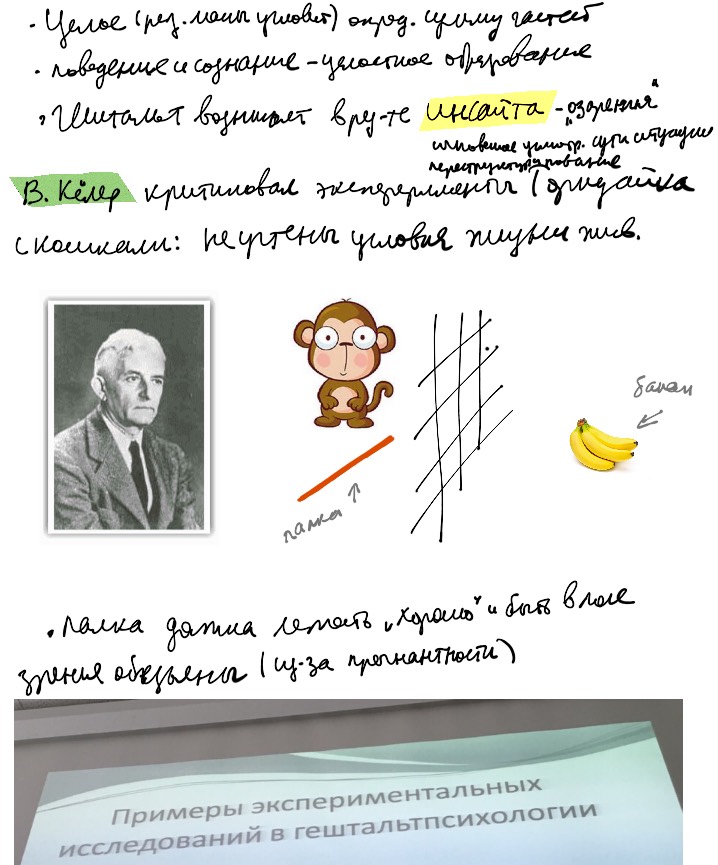 • Целое (рез. мыш условет) опред. сумму частей
• поведение и сознание – целостное образование
• Гештальт возникает в рез-те инсайта – „озарения“
мгновенное усмотр. сути ситуации
переструктурирование
В. Кёлер критиковал эксперименты Торндайка
с кошками: не учтены условия жизни жив.
банан
палка
• палка должна лежать „хорошо“ и быть в поле
зрения обезьяны (из-за прегнантности)
Примеры экспериментальных
исследований в гештальтпсихологии